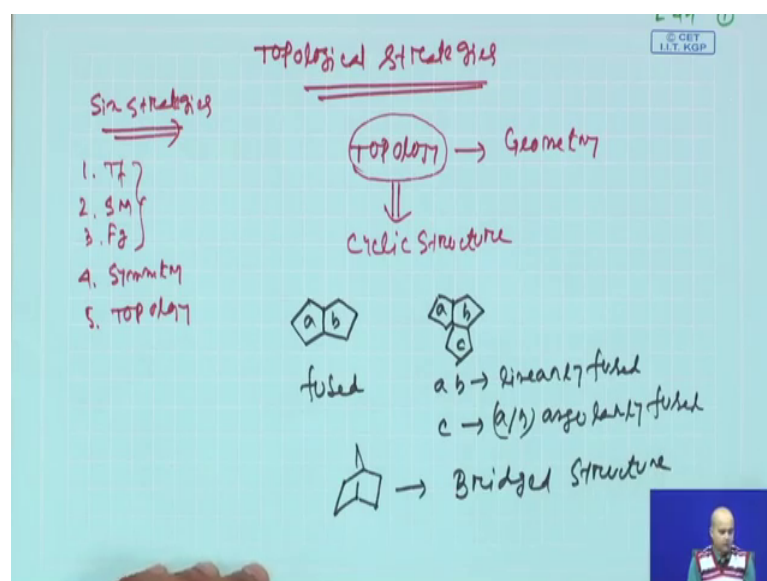 L 49 ①
© CET
I.I.T. KGP
Topological Strategies
Six Strategies
1. Tf
2. SM
3. Fg
4. Symmetry
5. Topology
TOPOLOGY → Geometry
Cyclic Structure
a b
fused
a b
c
a b → linearly fused
c → (a/b) angularly fused
→ Bridged Structure